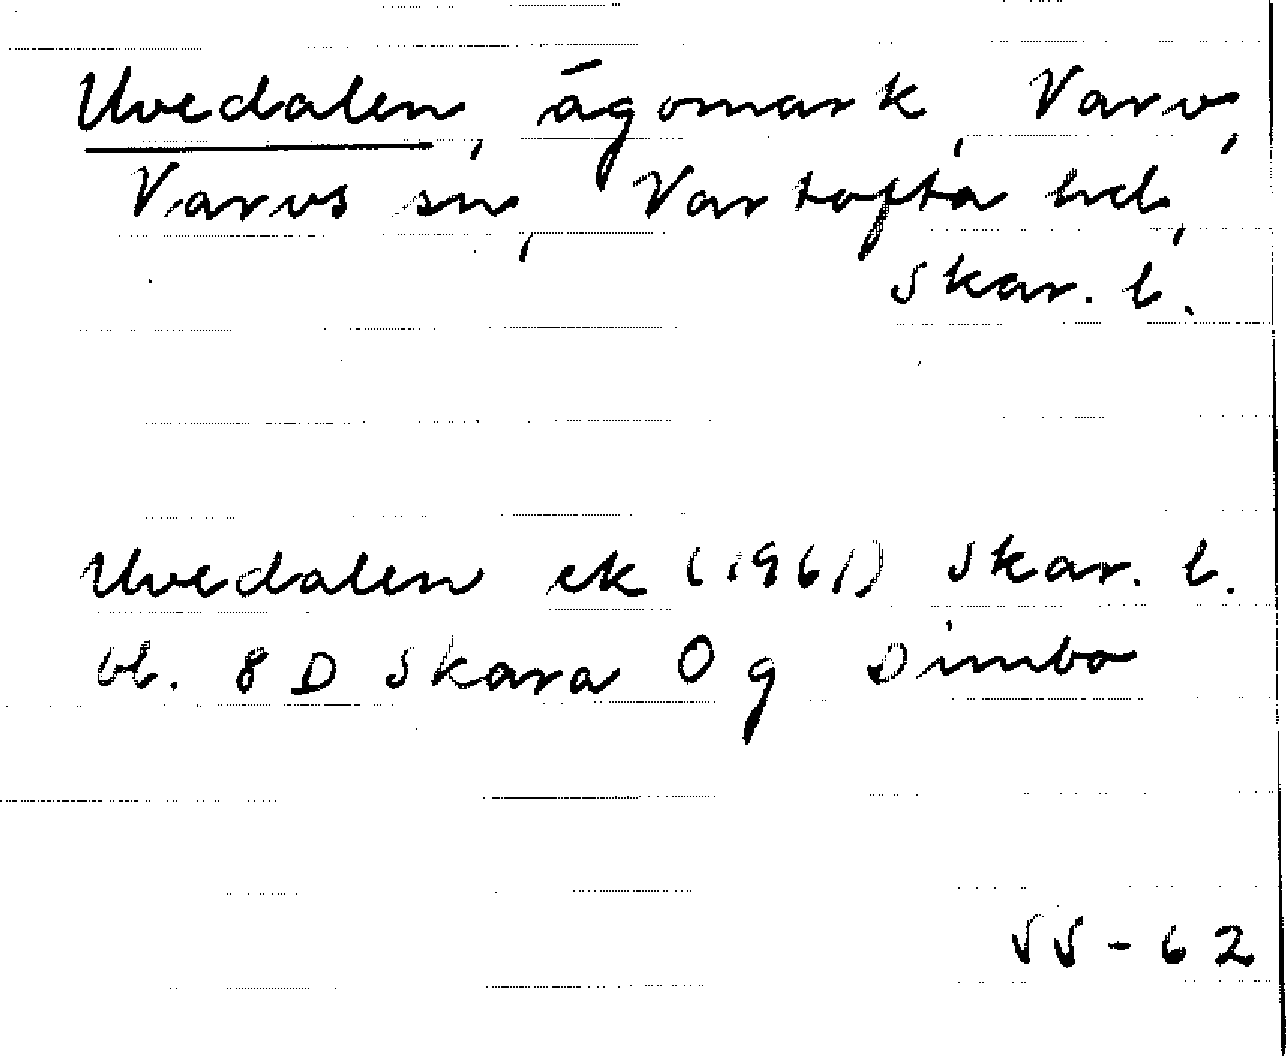 Uvedalen, ägomark, Varv,
Varvs sn, Vartofta hd,
Skar. l.
Uvedalen ek (1961) Skar. l.
bl. 8 D Skara 0 g Dimbo
SS-62